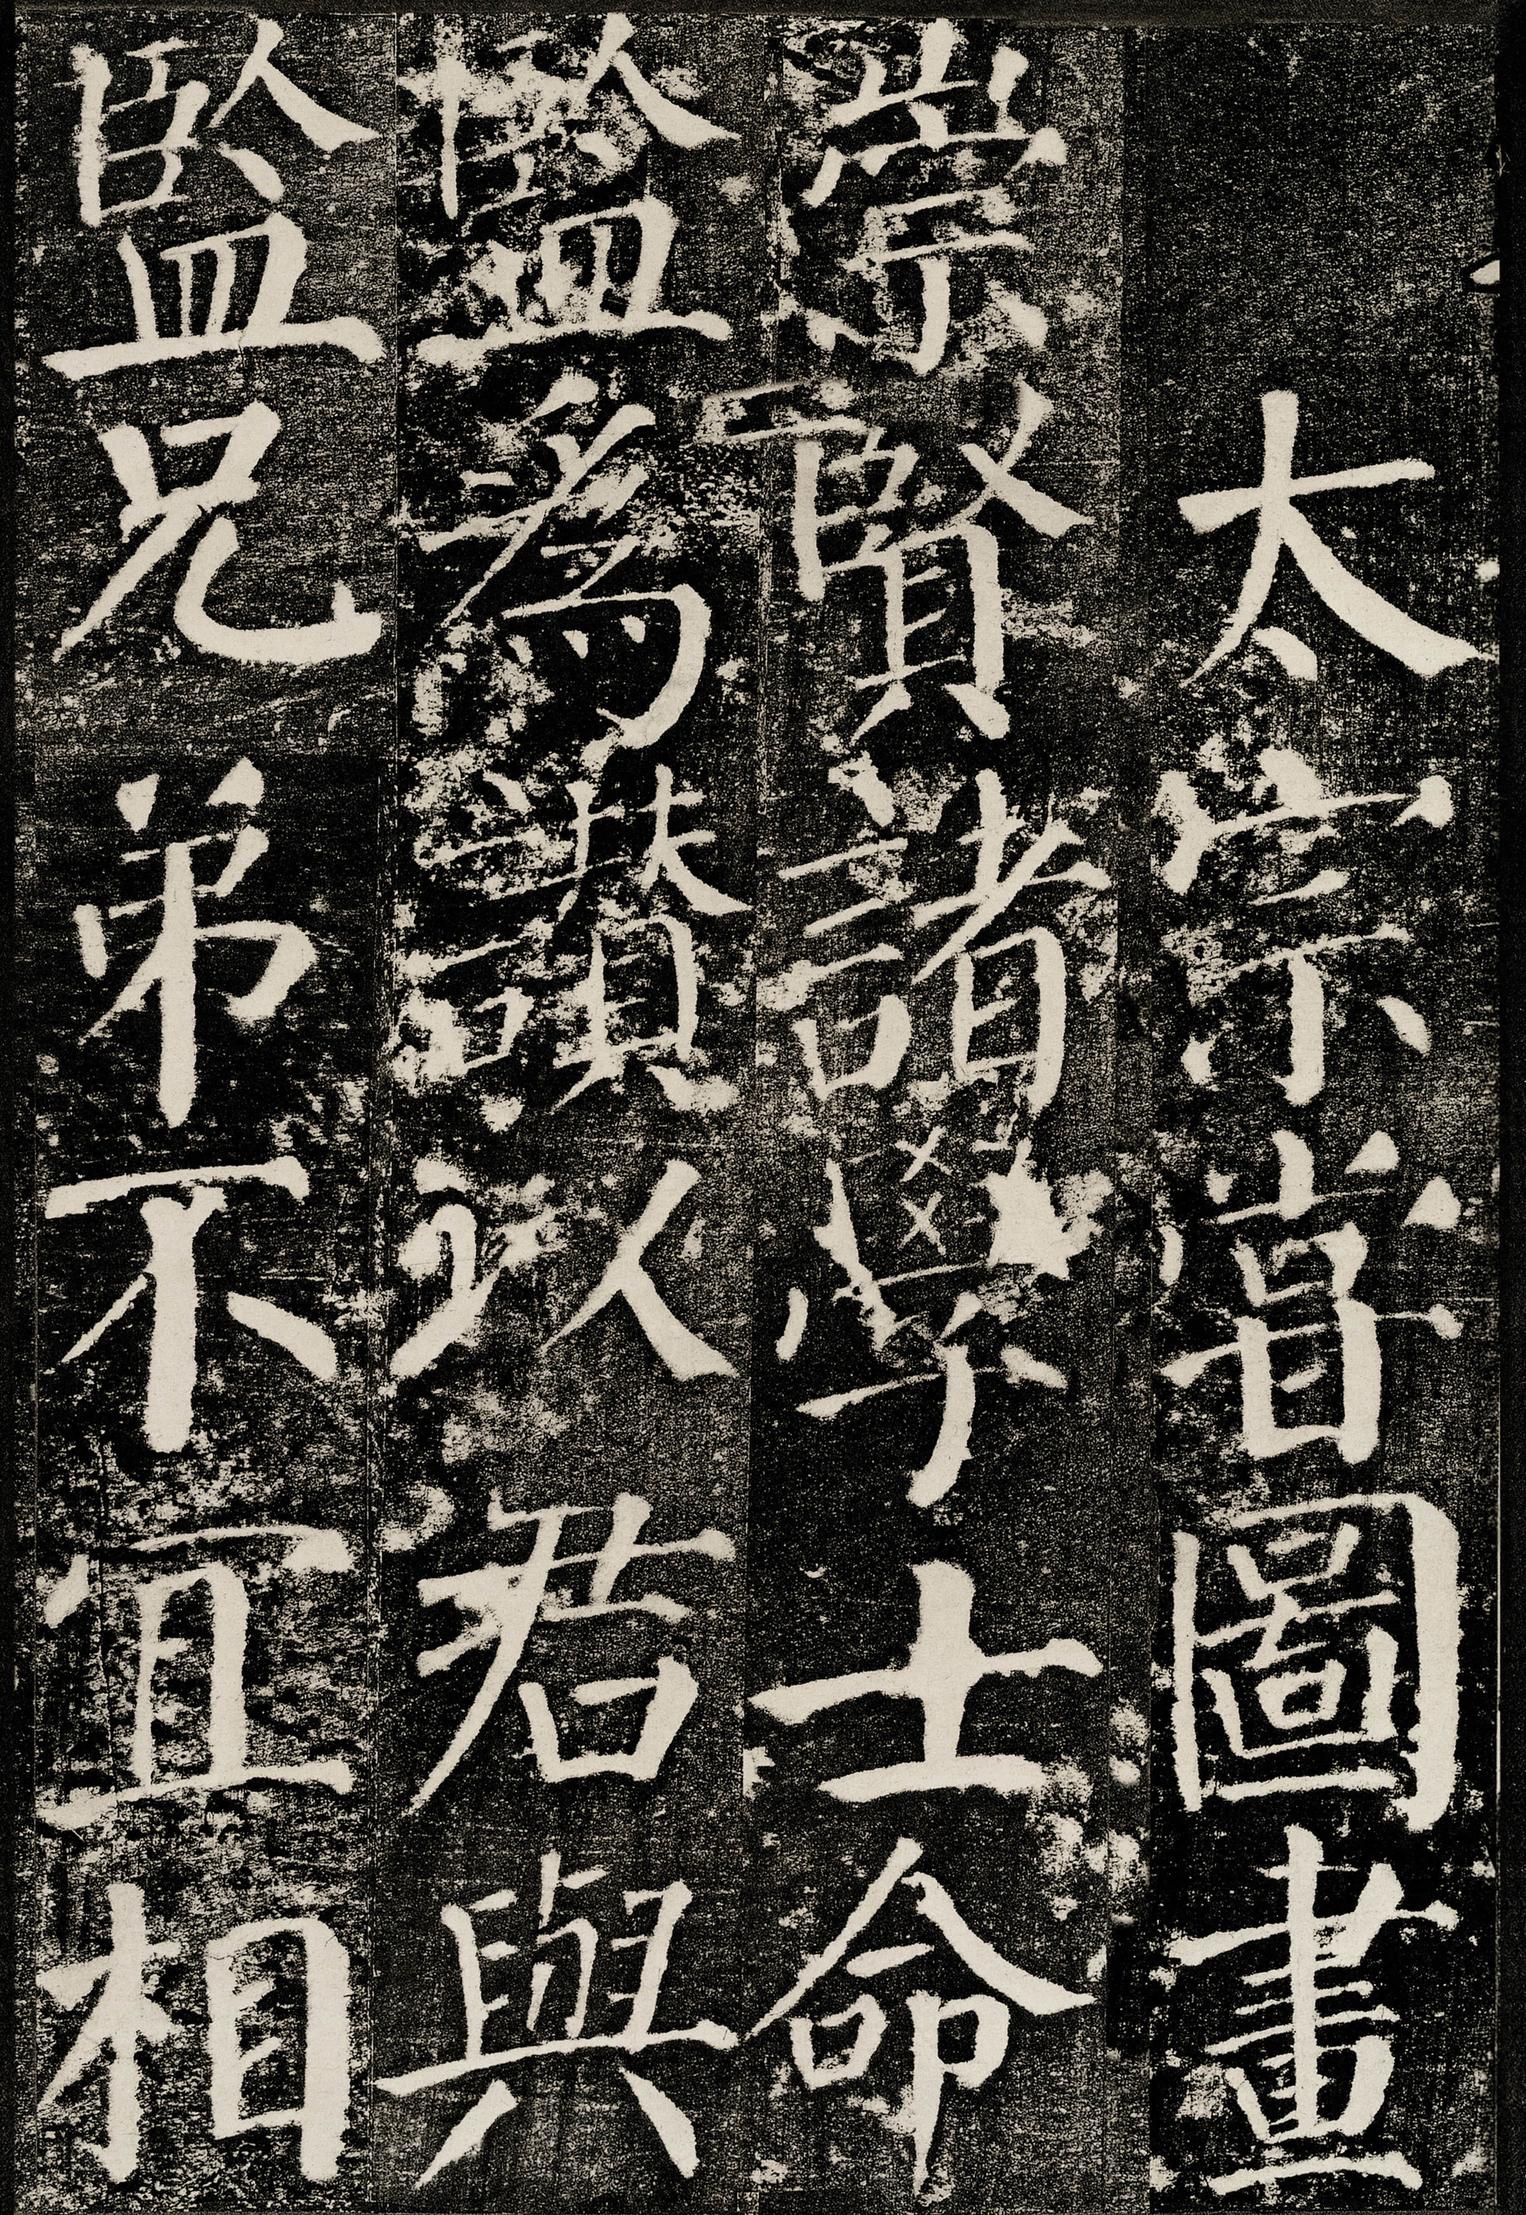 太宗嘗圖畫
崇賢諸學士命
監爲讃以君與
監兄弟不宜相